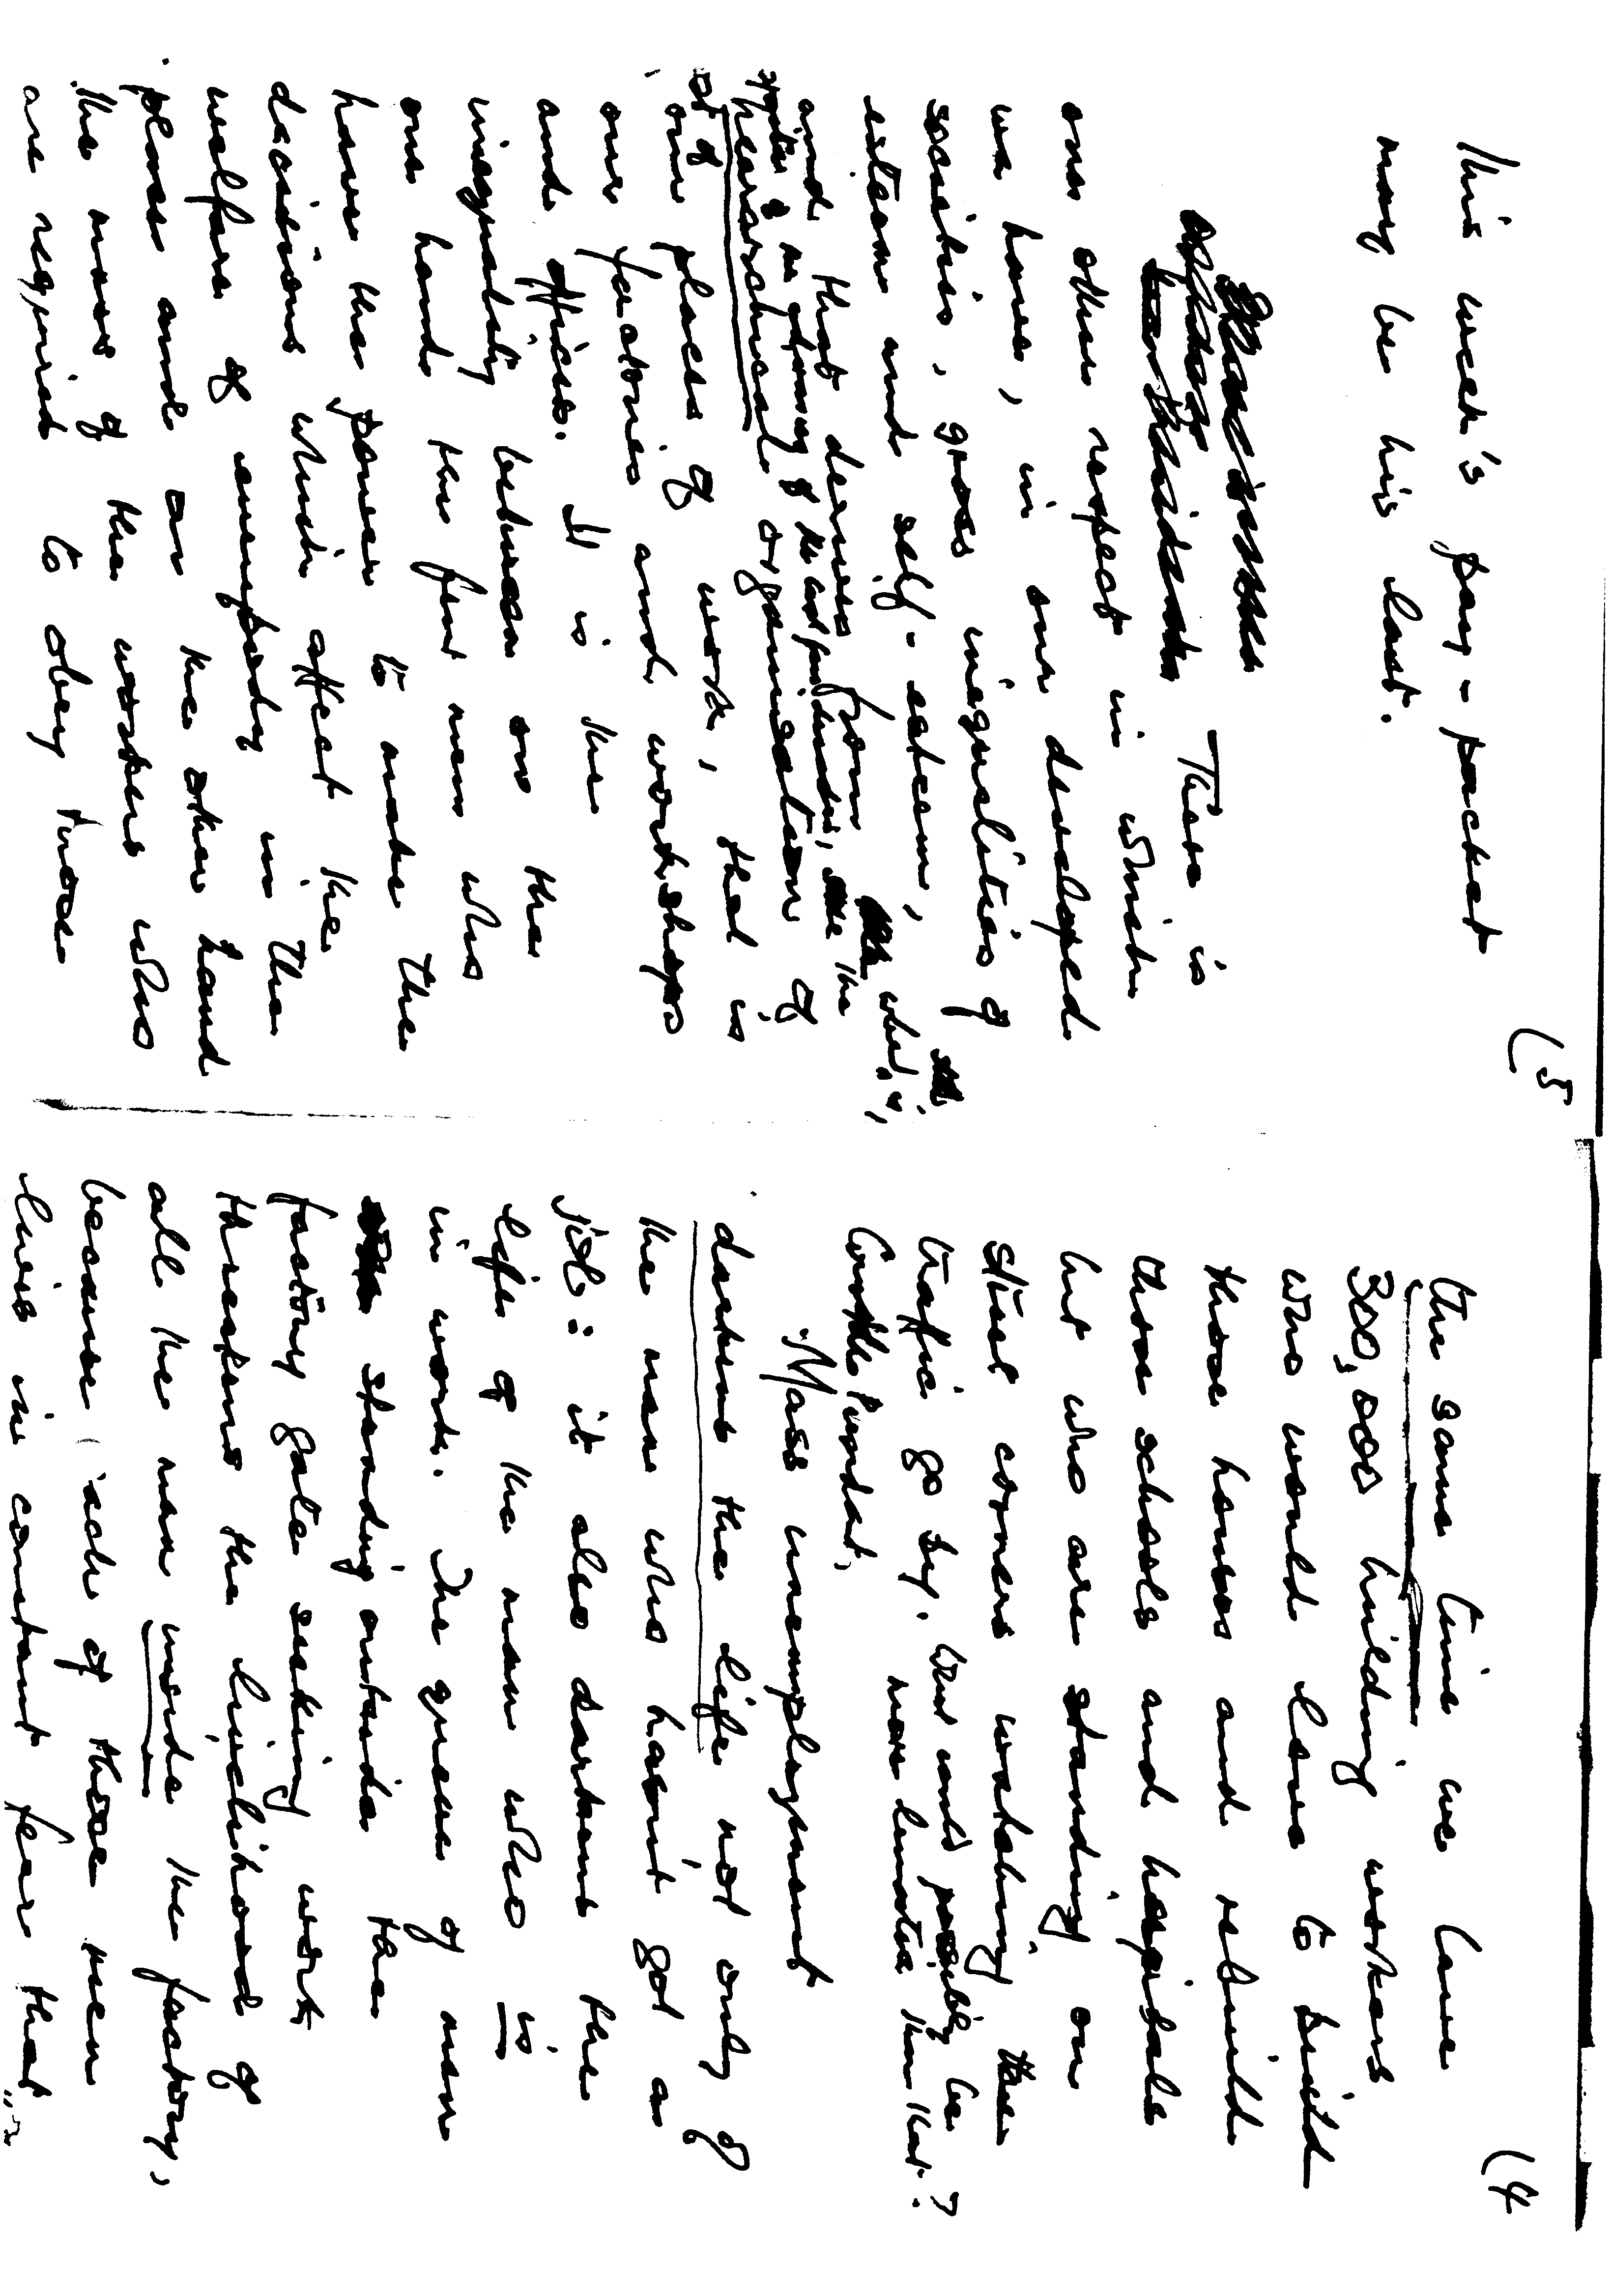 (4
the same time we have
300,000 building workers
who would love to build
those houses and rebuild
those schools and hospitals
but who are standing on
street corners watching the
traffic go by. What could possibly be
more lunatic than that?
Mass unemployment
darkens the life not only of
the man who hasn't got a
job: it also darkens the
life of the man who is
in work. The queue of men
standing outside the
factory gate seeking work
threatens the livelihood of
all the men inside the factory,
because each of those men
lives in constant fear that
(5
This week's pay-packet
may be his last.
There is
one other respect in which
we have, in our developed
societies, gross inequalities of
esteem and self-esteem,
and that derives from what is,
spite of the
hierarchical organisation of
our places of work, that is
our factories and workshops
and offices. It is the
inequality between on the
one hand the few men who
have the power to make the
decisions which affect the
welfare of everybody in the
place and on the other hand
the mass of the workers who
are required to obey those